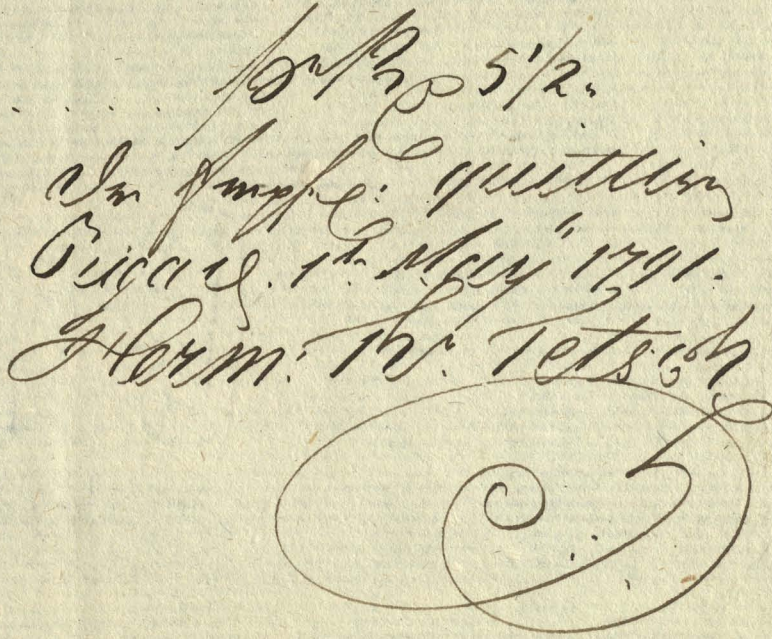 5 1/2.
Den Empf: quittire
Riga d. 1t. May 1791.
Herm: Th: Tetsch